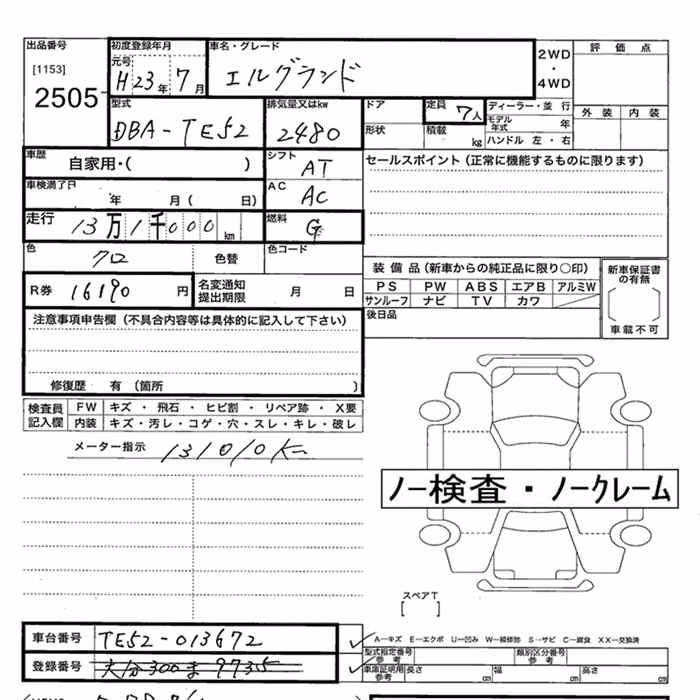 出品番号 初度登録年月 車名・グレード 評価点
[1153] 元号 2WD
2505 H23年 7月 エルグランド ・
4WD
型式 排気量又はkw ドア 定員 7人 ディーラー・並 行 外 装 内 装
DBA-TE52 2480 形状 積載 kg モデル年式 年
ハンドル 左・右
車歴 自家用・( ) シフト AT セールスポイント(正常に機能するものに限ります)
車検満了日 年 月( 日) AC AC
走行 13万1千000km 燃料 G
色 クロ 色替 色コード
装 備 品(新車からの純正品に限り○印) 新車保証書の有無
R券 16190円 名変通知提出期限 月 日 PS PW ABS エアB アルミW
サンルーフ ナビ TV カワ
注意事項申告欄(不具合内容等は具体的に記入して下さい) 後日品 車載不可
修復歴 有(箇所 )
検査員記入欄 FW キズ ・ 飛石 ・ ヒビ割 ・ リペア跡 ・ X要
内装 キズ・汚レ・コゲ・穴・スレ・キレ・破レ
メーター指示 131010K
ノー検査・ノークレーム
スペアT
[ ]
車台番号 TE52-013672 A-キズ E-エクボ U-凹み W-補修跡 S-サビ C-腐食 XX-交換済
型式指定番号 参考 類別区分番号 参考
登録番号 大分300ま9735 車庫証明用参考 長さ cm 幅 cm 高さ cm